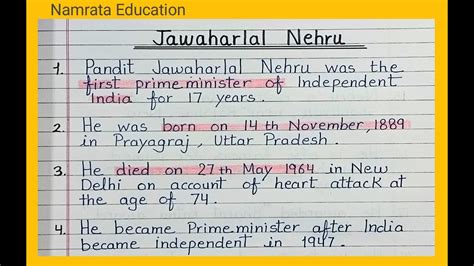 Namrata Education
Jawaharlal Nehru
1. Pandit Jawaharlal Nehru was the
first prime minister of Independent
India for 17 years.
2. He was born on 14 th November, 1889
in Prayagraj, Uttar Pradesh.
3. He died on 27th May 1964 in New
Delhi on account of heart attack at
the age of 74.
4. He became Prime minister after India
became independent in 1947.